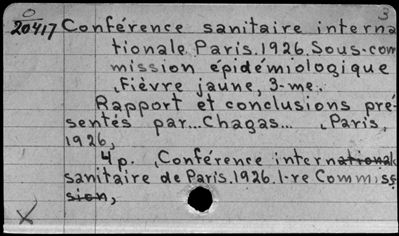 3
0
20417 Conférence sanitaire interna
tionale. Paris. 1926. Sous-com
mission épidémiologique
, Fièvre jaune, 3-me.
Rapport et conclusions pré-
sentés par... Chagas... , Paris,
1926,
4 p. , Conférence internationale
sanitaire de Paris. 1926. 1-re Commis
sion,
X